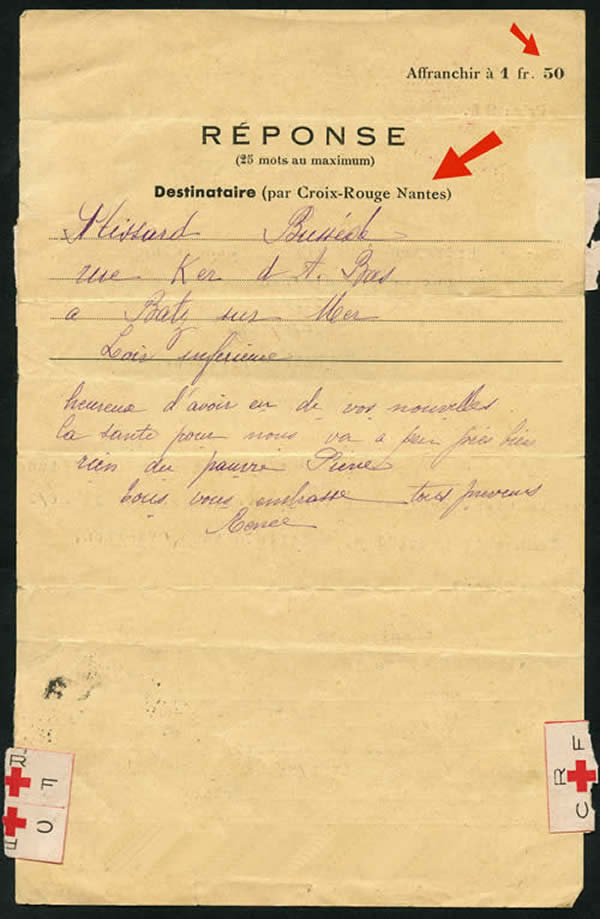 Affranchir à 1 fr. 50
RÉPONSE
(25 mots au maximum)
Destinataire (par Croix-Rouge Nantes)
rue Ker d A. Bas
a Batz sur Mer
Loir inferieure
heureux d'avoir eu de vos nouvelles
la santé pour nous va a peu près bien
rien du pauvre Pierre
tous vous embrasse
Renée
C R F
C R F